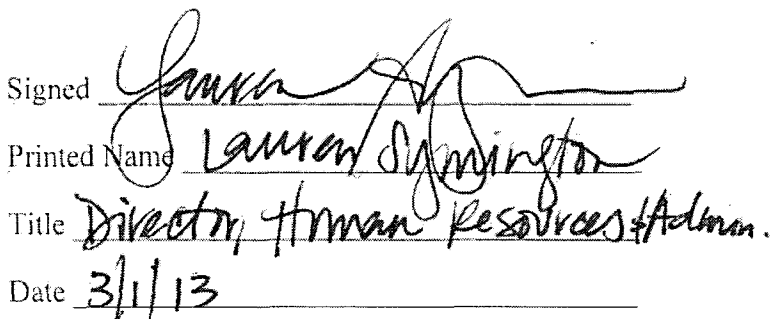 Signed Lauren Sy
Printed Name Lauren Symington
Title Director, Human Resources & Admin.
Date 3/1/13